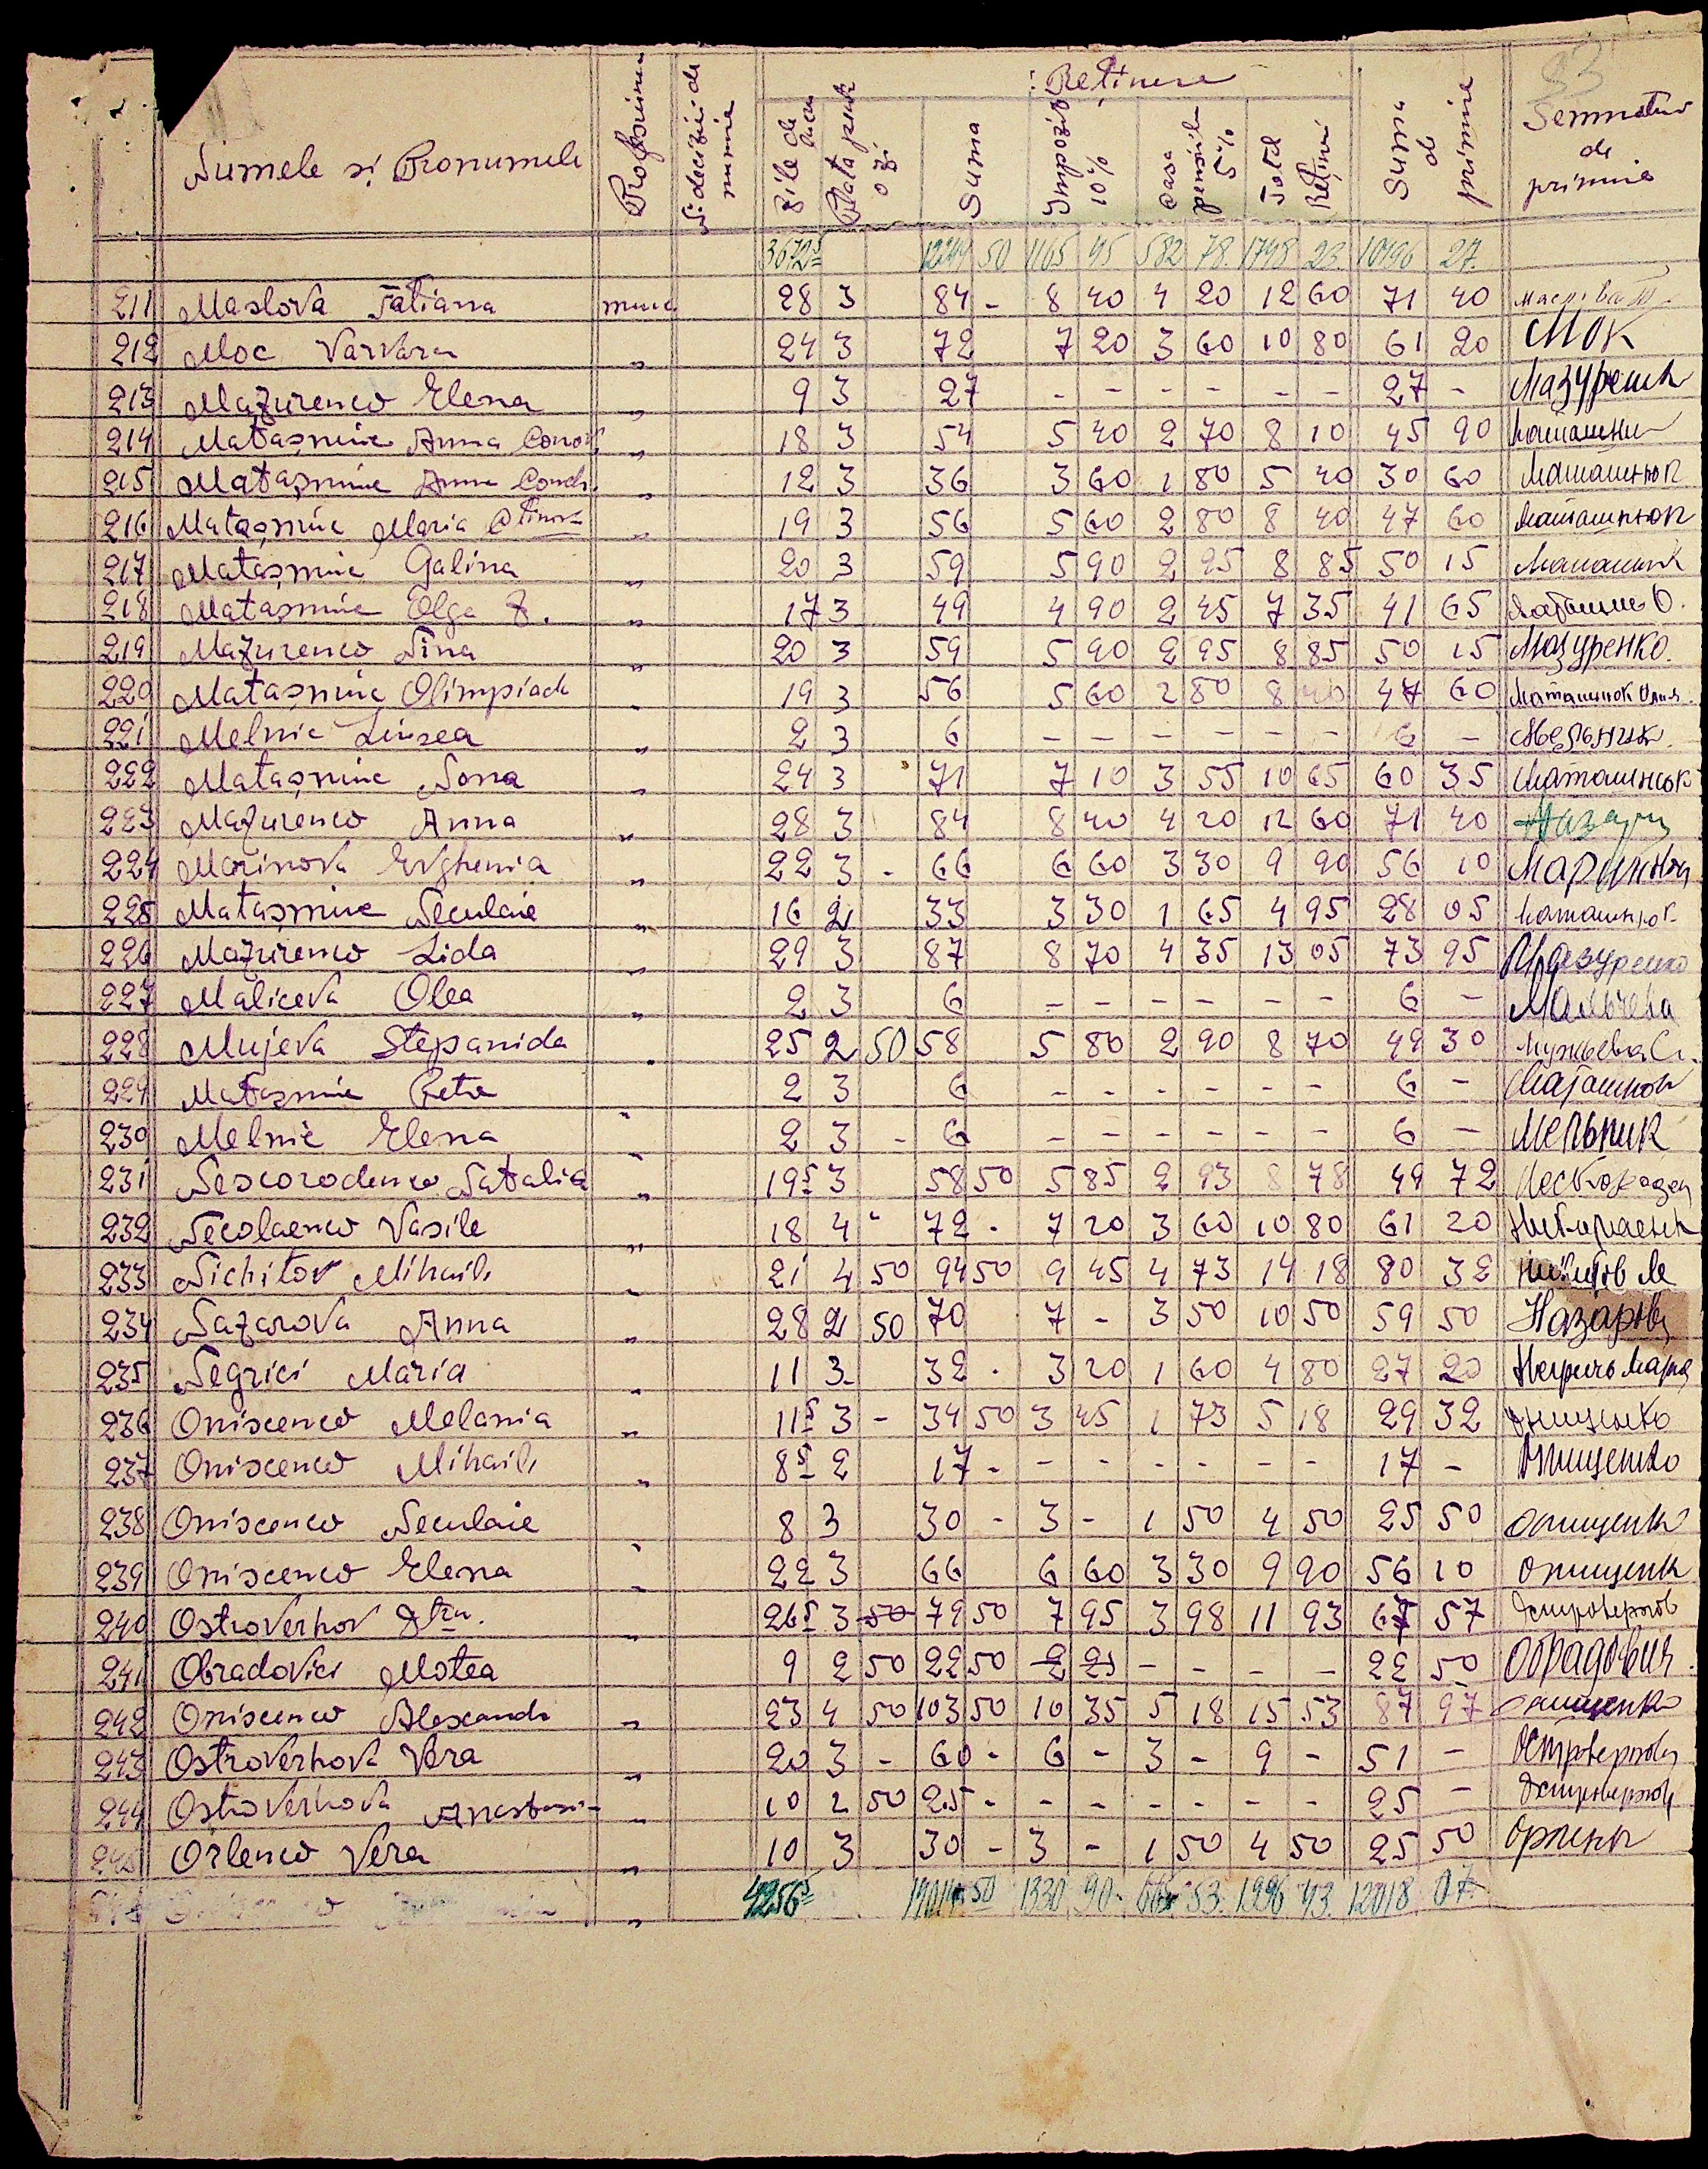 83
Numele și Pronumele Profesiunea Zile de lucru Plata pentr o zi Suma : Retinere Impozit 10% Casa pensiilor 5% Total Rețineri Suma de primire Semnatur de primire
3672⁵ 50 1165 45 582 78. 1748 23. 10496 27.
211 Maslova Tatiana munc 28 3 84 - 8 40 4 20 12 60 71 40
212 Moc Varvara " 24 3 72 7 20 3 60 10 80 61 20 Мок
213 Mazurenco Elena " 9 3 27 - - - - - - 27 -
214 Matașniuc Anna " 18 3 54 5 40 2 70 8 10 45 90
215 Matașniuc Anna Condr. " 12 3 36 3 60 1 80 5 40 30 60 Маташнюк
216 Matașniuc Maria " 19 3 56 5 60 2 80 8 40 47 60 Маташнюк
217 Matașniuc Galina " 20 3 59 5 90 2 95 8 85 50 15
218 Matașniuc Olga " 17 3 49 4 90 2 45 7 35 41 65
219 Mazurenco Nina " 20 3 59 5 90 2 95 8 85 50 15 Мазуренко.
220 Matașniuc Olimpiada " 19 3 56 5 60 2 80 8 40 47 60 Маташнюк
221 Melnic " 2 3 6 - - - - - - 6 - Мельник
222 Matașniuc Nona " 24 3 71 7 10 3 55 10 65 60 35 Маташнюк
223 Mazurenco Anna " 28 3 84 8 40 4 20 12 60 71 40
224 Marinova Evghenia " 22 3 - 66 6 60 3 30 9 90 56 10
225 Matașniuc Neculaie " 16 2 33 3 30 1 65 4 95 28 05 Маташнюк
226 Mazurenco Lida " 29 3 87 8 70 4 35 13 05 73 95 Мазуренко
227 Maliceva Olea " 2 3 6 - - - - - - 6 - Мальчева
228 Mujeva Stepanida " 25 2 50 58 5 80 2 90 8 70 49 30 Мужьева Ст.
229 Matașniuc Petre " 2 3 6 - - - - - - 6 - Маташнюк
230 Melnic Elena " 2 3 - 6 - - - - - - 6 - Мельник
231 Nescorodenco Natalia " 19⁵ 3 58 50 5 85 2 93 8 78 49 72
232 Necolaenco Vasile " 18 4 72 - 7 20 3 60 10 80 61 20
233 Nichitov Mihail " 21 4 50 94 50 9 45 4 73 14 18 80 32 Никитов М
234 Nazarova Anna " 28 2 50 70 7 - 3 50 10 50 59 50 Назарова
235 Negrici Maria " 11 3 32 - 3 20 1 60 4 80 27 20
236 Oniscenco Melania " 11⁵ 3 - 34 50 3 45 1 73 5 18 29 32 Онищенко
237 Oniscenco Mihail " 8⁵ 2 17 - - - - - - - 17 - Онищенко
238 Oniscenco Neculaie " 8 3 30 - 3 - 1 50 4 50 25 50 Онищенко
239 Oniscenco Elena " 22 3 66 6 60 3 30 9 90 56 10 Онищенк
240 Ostroverhov " 26⁵ 3 50 79 50 7 95 3 98 11 93 67 57 Островерхов
241 Obradovici Motea 9 2 50 22 50 2 25 - - - - 22 50 Обрадович
242 Oniscenco Alexandr " 23 4 50 103 50 10 35 5 18 15 53 87 97 Онищенко
243 Ostroverhova Vera " 20 3 - 60 - 6 - 3 - 9 - 51 - Островерхова
244 Ostroverhova " 10 2 50 25 - - - - - - - 25 - Островерхов
245 Orlenco Vera " 10 3 30 - 3 - 1 50 4 50 25 50
" 4256⁵ 50 1330 90 53. 1996 43. 12018 07.